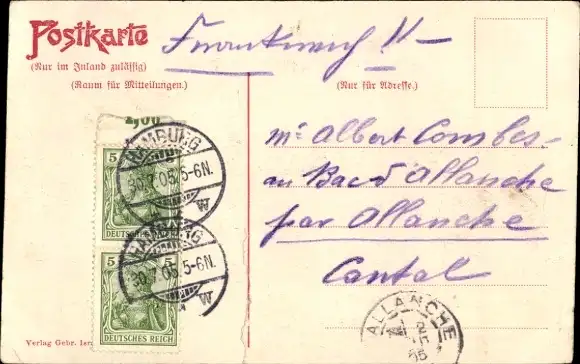 Postkarte
(Nur im Inland zulässig)
(Raum für Mitteilungen.)
Frankreich !!
(Nur für Adresse.)
HAMBURG
30.7.05.5-6N.
5
DEUTSCHES REICH
HAMBURG
30.7.05.5-6N.
5 5
DEUTSCHES REICH
Mr Albert Combes
au Bac d'Allanche
par Allanche
Cantal
ALLANCHE
Verlag Gebr.